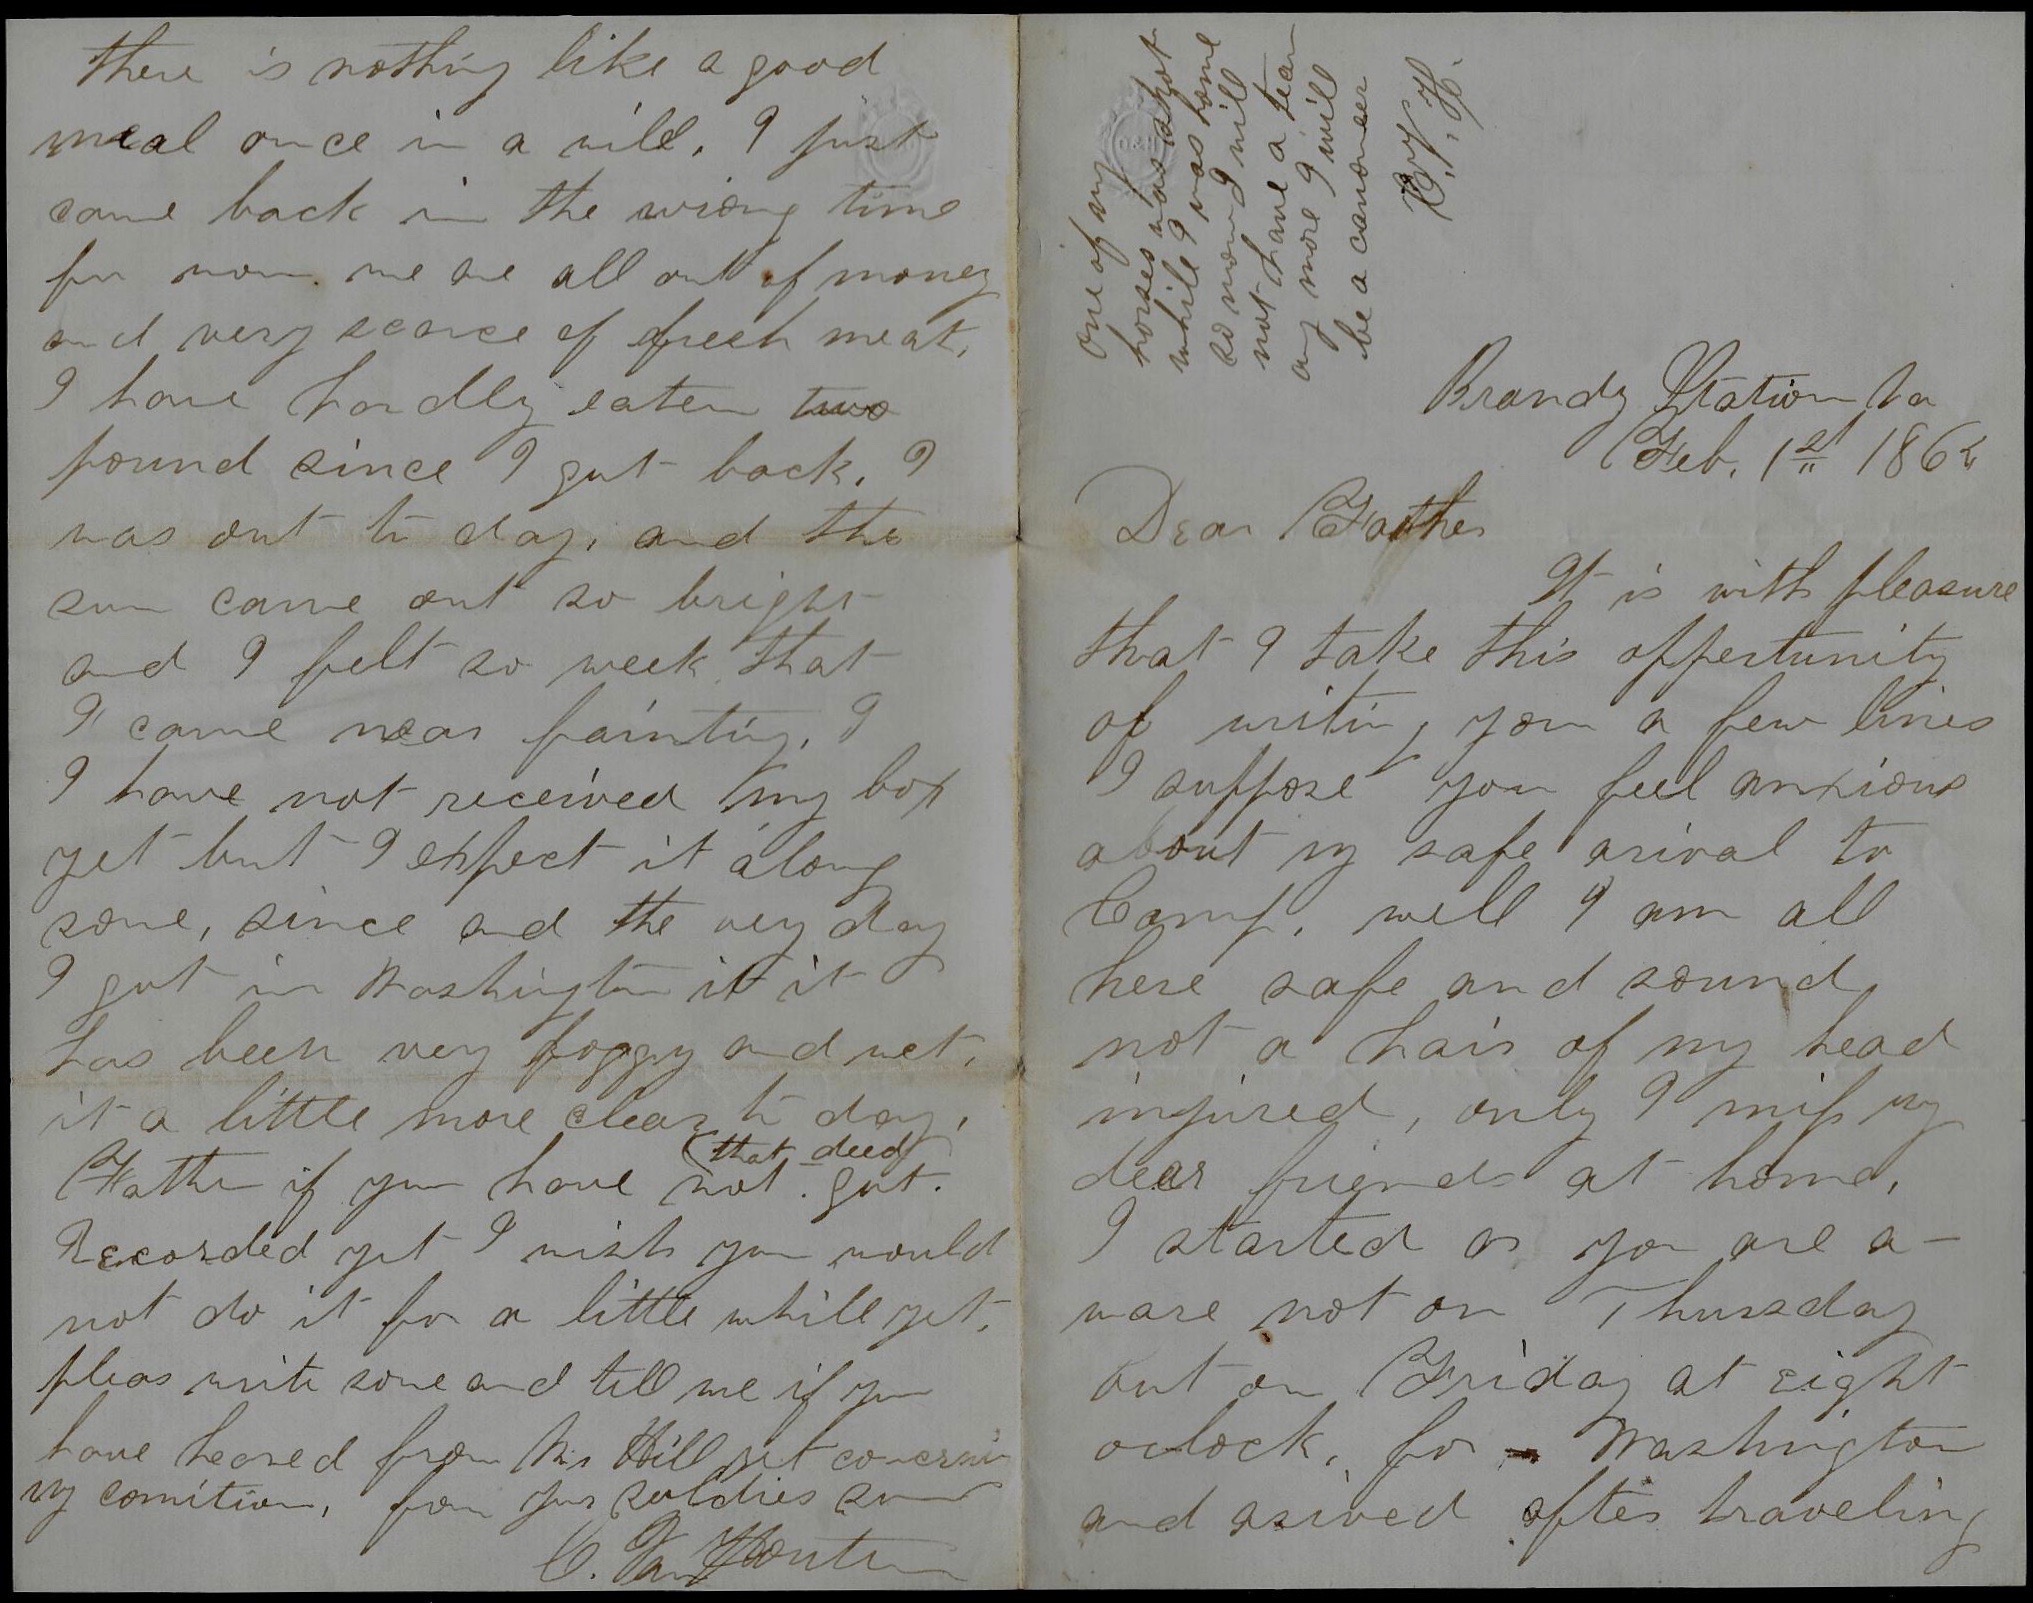 one of my
horses was shot
while I was home
so now I will
not have a team
any more I will
be a canoneer
C. V. H.
Brandy Station Va
Feb. 1st 1864
Dear Father
It is with pleasure
that I take this oppertunity
of writing you a few lines
I suppose you feel anxious
about my safe arival to
Camp, well I am all
here safe and sound
not a hair of my head
injured, only I miss my
dear friends at home,
I started as you are a-
ware not on Thursday
but on Friday at eight
oclock, for Washington
and arived after traveling
there is nothing like a good
meal once in a will. I just
came back in the wrong time
for now we are all out of money
and very scarce of fresh meat,
I have hardly eaten two
pound since I got back. I
was out to day, and the
sun came out so bright
and I felt so week that
I came near fainting, I
I have not received my box
yet but I expect it along
sone, since and the very day
I got in Washington it it
has been very foggy and wet,
it a little more clear to day,
(that deed)
Father if you have not got
Recorded yet I wish you would
not do it for a little while yet,
pleas write sone and till me if you
have heared from Mr Hill yet concernin
my comition, from your soldies son
C. Van Houten